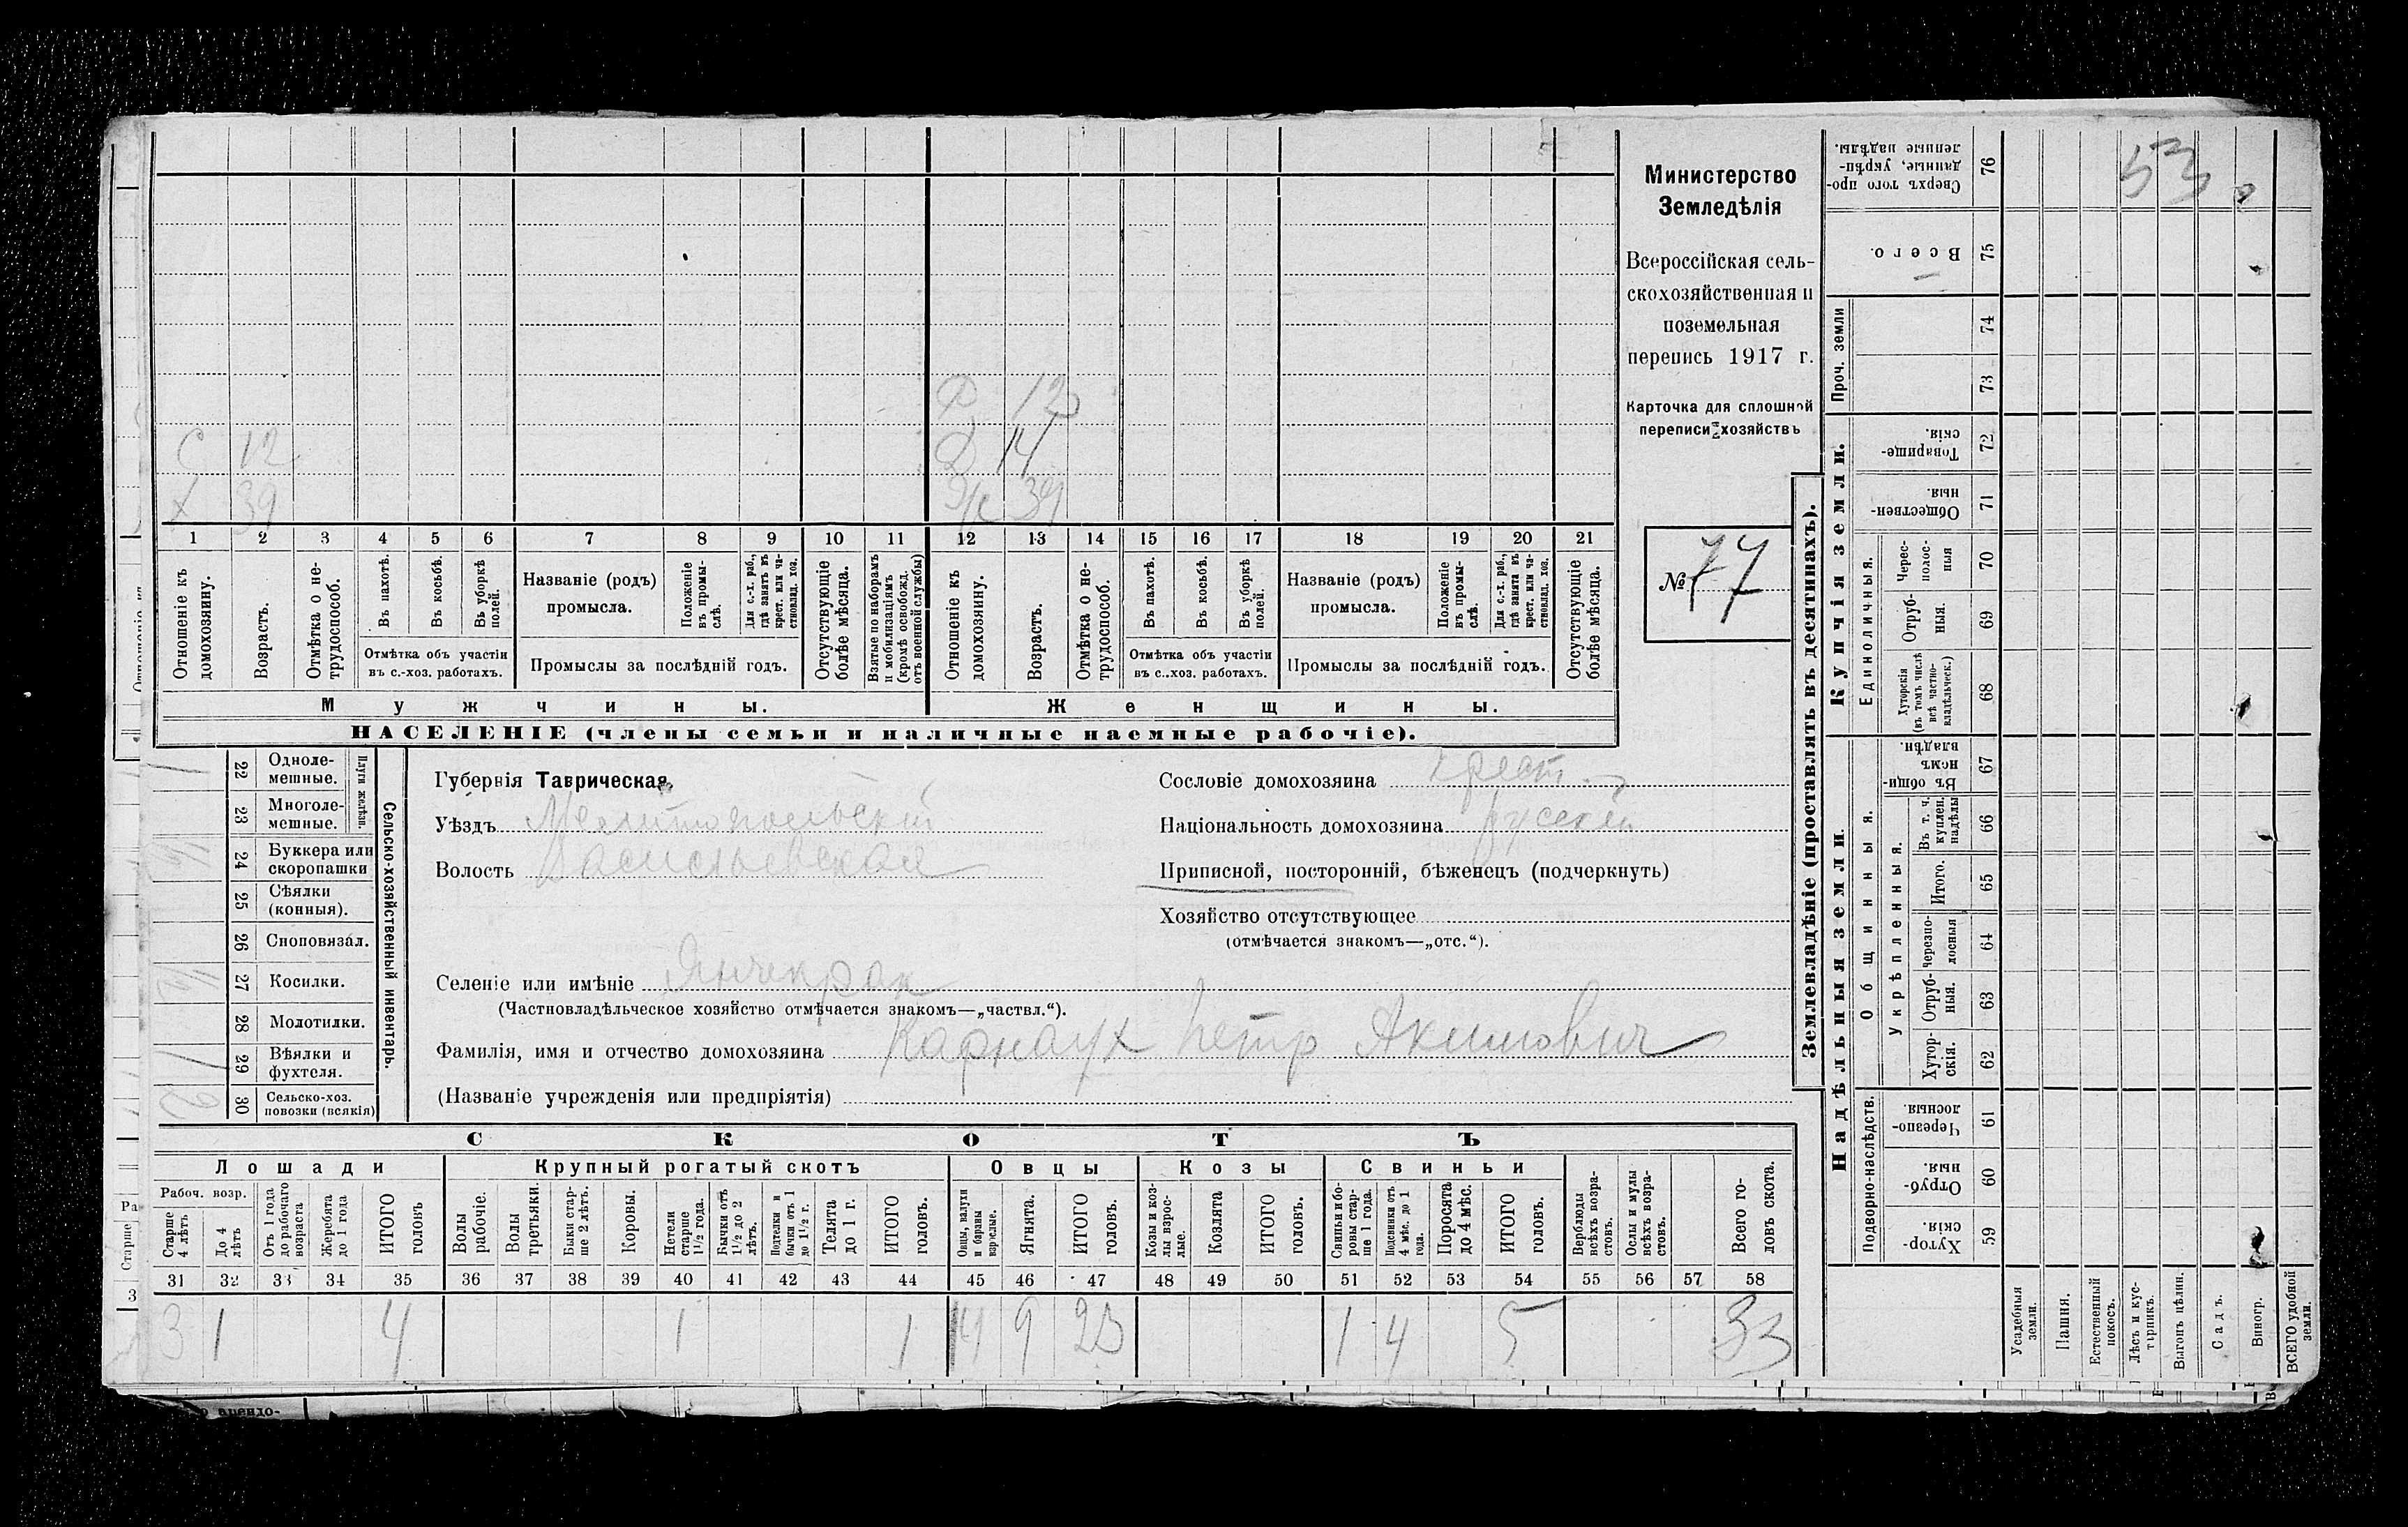 Министерство
Земледѣлія
Всероссійская сель-
скохозяйственная и
поземельная
перепись 1917 г.
Карточка для сплошной
переписи хозяйствъ
№ 77
Д 12
С 12 Д 14
Х 39 Ж 39
1 2 3 4 5 6 7 8 9 10 11 12 13 14 15 16 17 18 19 20 21
Отношеніе къ домохозяину.
Возрастъ.
Отмѣтка о не-трудоспособ.
Въ пахотѣ.
Въ косьбѣ.
Въ уборкѣ полей.
Отмѣтка объ участіи
въ с.-хоз. работахъ.
Названіе (родъ)
промысла.
Положеніе въ промы-слѣ.
Для с.-х. раб., гдѣ занятъ въ крест. или ча-стновлад. хоз.
Промыслы за послѣдній годъ.
Отсутствующіе болѣе мѣсяца.
Взятые по наборамъ и мобилизаціямъ (кромѣ освобожд. отъ военной службы)
Отношеніе къ домохозяину.
Возрастъ.
Отмѣтка о не-трудоспособ.
Въ пахотѣ.
Въ косьбѣ.
Въ уборкѣ полей.
Отмѣтка объ участіи
въ с.-хоз. работахъ.
Названіе (родъ)
промысла.
Положеніе въ промы-слѣ.
Для с.-х. раб., гдѣ занята въ крест. или ча-стновлад. хоз.
Промыслы за послѣдній годъ.
Отсутствующіе болѣе мѣсяца.
Мужчины. Женщины.
НАСЕЛЕНІЕ (члены семьи и наличные наемные рабочіе).
Сельско-хозяйственный инвентарь.
Плуги желѣзн.
1 22 Одноле-мешные.
23 Многоле-мешные.
24 Буккера или скоропашки
25 Сѣялки (конныя).
26 Сноповязал.
27 Косилки.
28 Молотилки.
1 29 Вѣялки и фухтеля.
2 30 Сельско-хоз. повозки (всякія)
Губернія Таврическая
Уѣздъ Мелитопольскій
Волость Васильевская
Сословіе домохозяина крест.
Національность домохозяина русскій
Приписной, посторонній, бѣженецъ (подчеркнуть)
Хозяйство отсутствующее
(отмѣчается знакомъ—„отс.“).
Селеніе или имѣніе Янчекрак
(Частновладѣльческое хозяйство отмѣчается знакомъ—„частвл.“).
Фамилія, имя и отчество домохозяина Карнаух Петр Акимович
(Названіе учрежденія или предпріятія)
СКОТЪ
Лошади Крупный рогатый скотъ Овцы Козы Свиньи
Рабоч. возр.
Старше 4 лѣтъ
До 4 лѣтъ
Отъ 1 года до рабочаго возраста
Жеребята до 1 года
ИТОГО головъ
Волы рабочіе.
Волы третьяки.
Быки стар-ше 2 лѣтъ.
Коровы.
Нетели старше 1½ года.
Бычки отъ 1½ до 2 лѣтъ.
Подтелки и бычки отъ 1 до 1½ г.
Телята до 1 г.
ИТОГО головъ.
Овцы, валухи и бараны взрослые.
Ягнята.
ИТОГО головъ.
Козы и коз-лы взрос-лые.
Козлята
ИТОГО головъ.
Свиньи и бо-ровы стар-ше 1 года.
Подсвинки отъ 4 мѣс. до 1 года.
Поросята до 4 мѣс.
ИТОГО головъ.
Верблюды всѣхъ возра-стовъ.
Ослы и мулы всѣхъ возра-стовъ.
Всего го-ловъ скота.
31 32 33 34 35 36 37 38 39 40 41 42 43 44 45 46 47 48 49 50 51 52 53 54 55 56 57 58
3 1 4 1 1 14 9 23 1 4 5 33
Землевладѣніе (проставлять въ десятинахъ).
Надѣльныя земли. Купчія земли.
Проч. земли
Общинныя.
Укрѣпленныя.
Единоличныя.
Подворно-наслѣдств.
76 Сверхъ того про-данные, укрѣп-ленные надѣлы.
75 Всего.
74
73
72 Товарище-скія.
71 Обществен-ныя.
70 Черес-полос-ныя
69 Отруб-ныя.
68 Хуторскія (въ томъ числѣ всѣ частно-владѣльческ.)
67 Въ общи-номъ владѣн.
66 Въ т. ч. куплен. надѣлы
65 Итого.
64 Черезпо-лосныя
63 Отруб-ныя.
62 Хутор-скія.
61 Черезпо-лосныя.
60 Отруб-ныя.
59 Хутор-скія.
Усадебныя земли.
Пашня.
Естественный покосъ.
Лѣсъ и кус-тарникъ.
Выгонъ цѣлин.
Садъ.
Виногр.
ВСЕГО удобной земли.
53
Старше
3